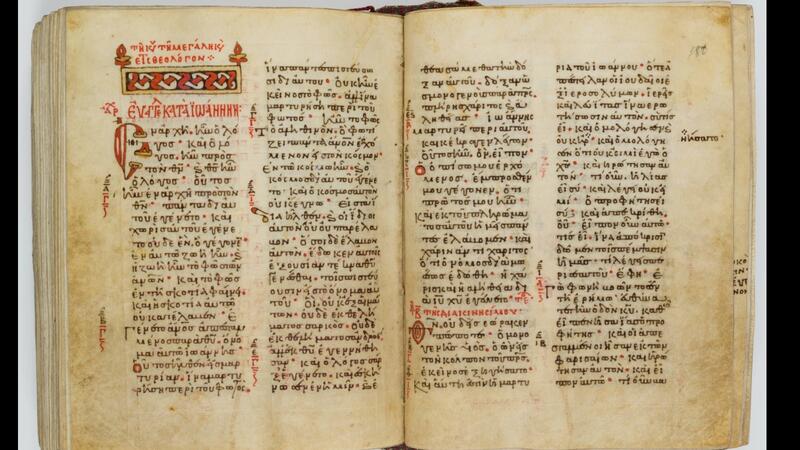 τῆ κυ τῆ μεγάλη κυ
ευα κατὰ ϊωάννην:
Ἐν ἀρχῆ ἦν ὁ λό
γος· καὶ ὁ λό
γος ἦν προς
τὸν θν· καὶ θς
ἦν ὁ λόγος· οὗτος
ἦν ἐν ἀρχῆ πρὸς τὸν
θν· πάντα δι' αὐ
τοῦ ἐγένετο· καὶ
χωρὶς αὐτοῦ ἐγένε
το οὐδὲ ἕν, ὃ γέγονεν
ἐν αὐτῶ ζωὴ ἦν· καὶ
ἡ ζωὴ ἦν τὸ φῶς τῶν
ανων· καὶ τὸ φῶς
ἐν τῆ σκοτία φαίνει·
καὶ ἡ σκοτία αὐτὸ
οὐ κατέλαβεν· Ἐ
γένετο ανος ἀπεσταλ
μένος παρὰ θυ· ὄνο
μα αὐτῶ ϊωάννης
οὗτος ἦλθεν εἰς μαρ
τυρίαν· ἵνα μαρτυ
ρήση περὶ τοῦ φωτός·
ἵνα πάντες πιστεύσω
σι δι' αὐτοῦ· οὐκ ἦν ἐ
κεῖνος τὸ φῶς· ἀλλ' ἵνα
μαρτυρήση περὶ τοῦ
φωτός· ἦν τὸ φῶς
τὸ ἀληθινόν· ὃ φωτί
ζει πάντα ανον ἐρχό
μενον εἰς τὸν κόσμον·
ἐν τῶ κόσμω ἦν· καὶ ὁ
κόσμος δι' αὐτοῦ ἐγένε
το· καὶ ὁ κόσμος αὐτὸν
οὐκ ἔγνω· εἰς τὰ ἴδι
α ἦλθεν· καὶ οἱ ἴδιοι
αὐτὸν οὐ παρέλα
βον· ὅσοι δὲ ἔλαβον
αὐτόν· ἔδωκεν αὐτοῖς
ἐξουσίαν τέκνα θυ
γενέσθαι· τοῖς πιστεύ
ουσιν εἰς τὸ ὄνομα αὐ
τοῦ· οἳ οὐκ ἐξ αἱμά
των· οὐδὲ ἐκ θελή
ματος σαρκός· οὐδὲ
ἐκ θελήματος ἀνδρός·
ἀλλ' ἐκ θυ ἐγεννήθη
σαν· καὶ ὁ λόγος σὰρ
ξ ἐγένετο· καὶ ἐσκή
νωσεν ἐν ἡμῖν· καὶ ἐ
θεασάμεθα τὴν δό
ξαν αὐτοῦ· δόξαν ὡς
μονογενοῦς παρὰ πρς·
πλήρης χάριτος καὶ ἀ
ληθείας· ϊωάννης
μαρτυρεῖ περὶ αὐτοῦ,
καὶ κέκραγε λέγων·
οὗτος ἦν, ὃν εἶπον·
ὁ ὀπίσω μου ἐρχό
μενος· ἔμπροσθέν
μου γέγονεν· ὅτι
πρῶτός μου ἦν·
καὶ ἐκ τοῦ πληρώμα
τος αὐτοῦ ἡμεῖς πάν
τες ἐλάβομεν· καὶ
χάριν ἀντὶ χάριτος·
ὅτι ὁ νόμος διὰ μω
σέως ἐδόθη· ἡ χάρις
καὶ ἡ ἀλήθεια δι
ὰ ιυ χυ ἐγένετο·
τῆ β τῆς διακινησίμου
Θν οὐδεὶς ἑώρακεν
πώποτε· ὁ μονο
γενὴς υἱός· ὁ ὢν εἰς
τὸν κόλπον τοῦ πρς,
ἐκεῖνος ἐξηγήσατο·
καὶ αὕτη ἐστὶν ἡ μαρτυ
ρία τοῦ ϊωάννου· ὅτε ἀ
πέστειλαν οἱ ἰουδαῖοι ἐ
ξ ἱεροσολύμων· ἱερεῖς
καὶ λευίτας ἵνα ἐρωτή
σωσιν αὐτόν· σὺ τίς
εἶ· καὶ ὡμολόγησεν καὶ
οὐκ · καὶ ὡμολόγη
σεν· ὅτι οὐκ εἰμὶ ἐγὼ ὁ
χς· καὶ ἠρώτησαν αὐ
τόν· τί οὖν· ἠλίας
εἶ σύ· καὶ λέγει οὐκ εἰ
μί· ὁ προφήτης εἶ
σύ· καὶ ἀπεκρίθη·
οὔ· εἶπον οὖν αὐτῶ·
τίς εἶ· ἵνα ἀπόκρισιν
δῶμεν τοῖς πέμψασιν
ἡμᾶς· τί λέγεις πε
ρὶ σεαυτοῦ· ἔφη· ἐ
γὼ φωνὴ βοῶντος ἐν
τῆ ἐρήμω· εὐθύνα
τε τὴν ὁδὸν κυ· καθὼς
εἶπεν ἡσαΐας ὁ προ
φήτης· καὶ οἱ ἀπε
σταλμένοι ἦσαν ἐκ τῶν
φαρισαίων· καὶ ἠρώ
τησαν αὐτόν· καὶ εἶ
πον αὐτῶ· τί οὖν βα